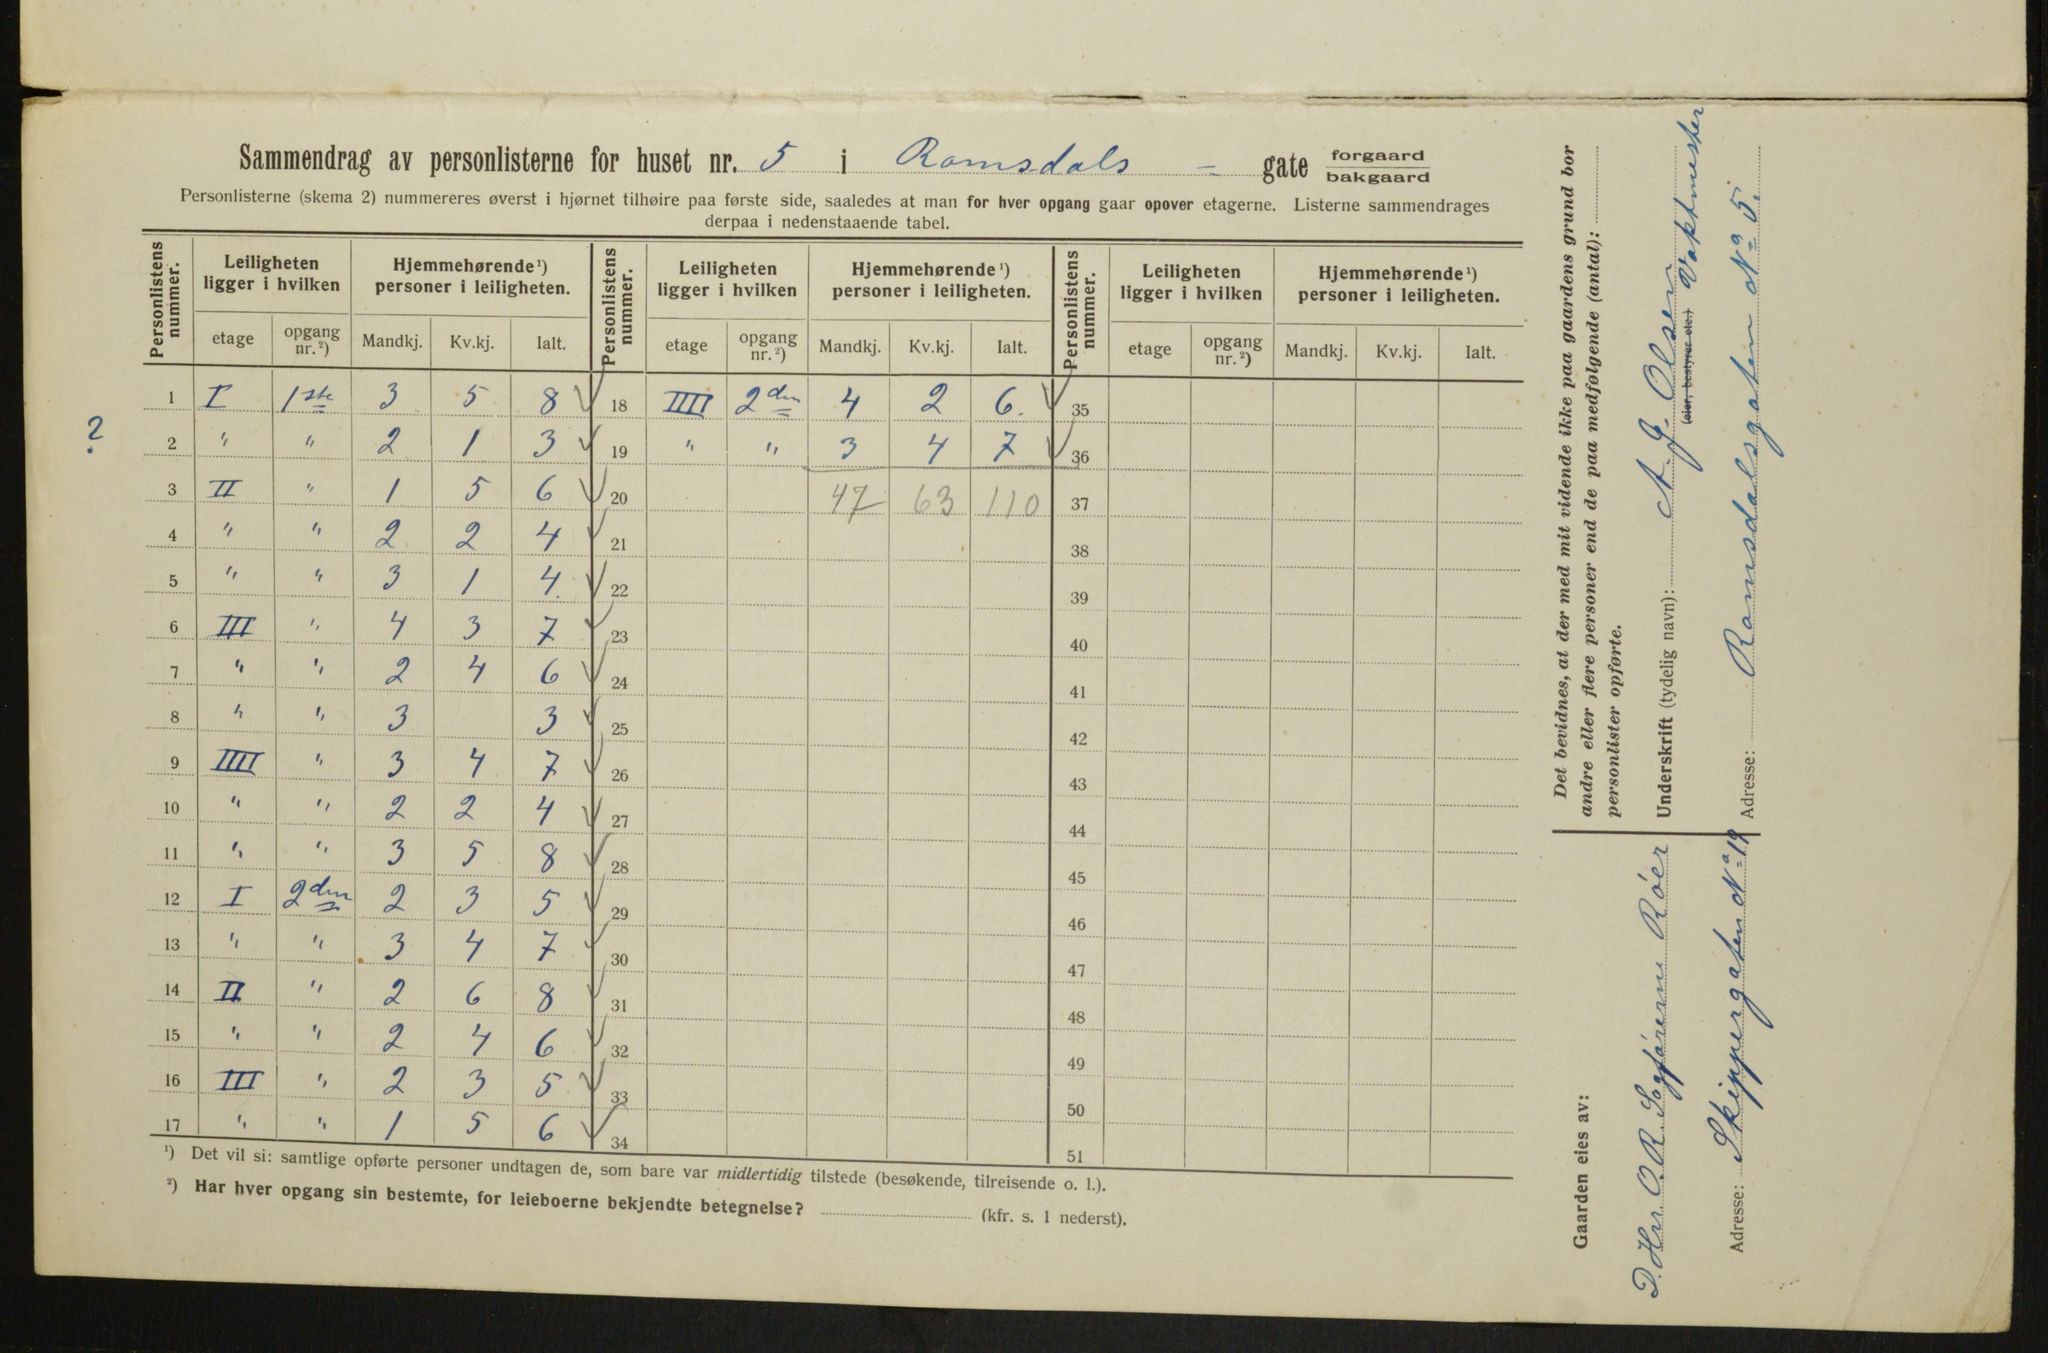 Sammendrag av personlisterne for huset nr. 5 i Romsdals - gate forgaard bakgaard
Personlisterne (skema 2) nummereres øverst i hjørnet tilhøire paa første side, saaledes at man for hver opgang gaar opover etagerne. Listerne sammendrages
derpaa i nedenstaaende tabel.
Personlistens nummer. Leiligheten ligger i hvilken etage opgang nr.²) Hjemmehørende¹) personer i leiligheten. Mandkj. Kv.kj. Ialt.
Personlistens nummer. Leiligheten ligger i hvilken etage opgang nr.²) Hjemmehørende¹) personer i leiligheten. Mandkj. Kv.kj. Ialt.
Personlistens nummer. Leiligheten ligger i hvilken etage opgang nr.²) Hjemmehørende¹) personer i leiligheten. Mandkj. Kv.kj. Ialt.
1 I 1ste 3 5 8 18 IIII 2den 4 2 6. 35
?
2 " " 2 1 3 19 " " 3 4 7 36
3 II " 1 5 6 20 47 63 110 37
4 " " 2 2 4 21 38
5 " " 3 1 4. 22 39
6 III " 4 3 7 23 40
7 " " 2 4 6 24 41
8 " " 3 3 25 42
9 IIII " 3 4 7 26 43
10 " " 2 2 4 27 44
11 " " 3 5 8 28 45
12 I 2den 2 3 5 29 46
13 " " 3 4 7 30 47
14 II " 2 6 8 31 48
15 " " 2 4 6 32 49
16 III " 2 3 5 33 50
17 " " 1 5 6 34 51
¹) Det vil si: samtlige opførte personer undtagen de, som bare var midlertidig tilstede (besøkende, tilreisende o. l.).
²) Har hver opgang sin bestemte, for leieboerne bekjendte betegnelse? (kfr. s. 1 nederst).
Det bevidnes, at der med mit vidende ikke paa gaardens grund bor
andre eller flere personer end de paa medfølgende (antal):
personlister opførte.
Underskrift (tydelig navn): A. J. Olsen Vaktmester
(eier, bestyrer etc.)
Adresse: Romsdalsgaten Nº 5.
Gaarden eies av:
D. Hr. O. R. Sagførerm Róer
Adresse: Skippergaten Nº 19